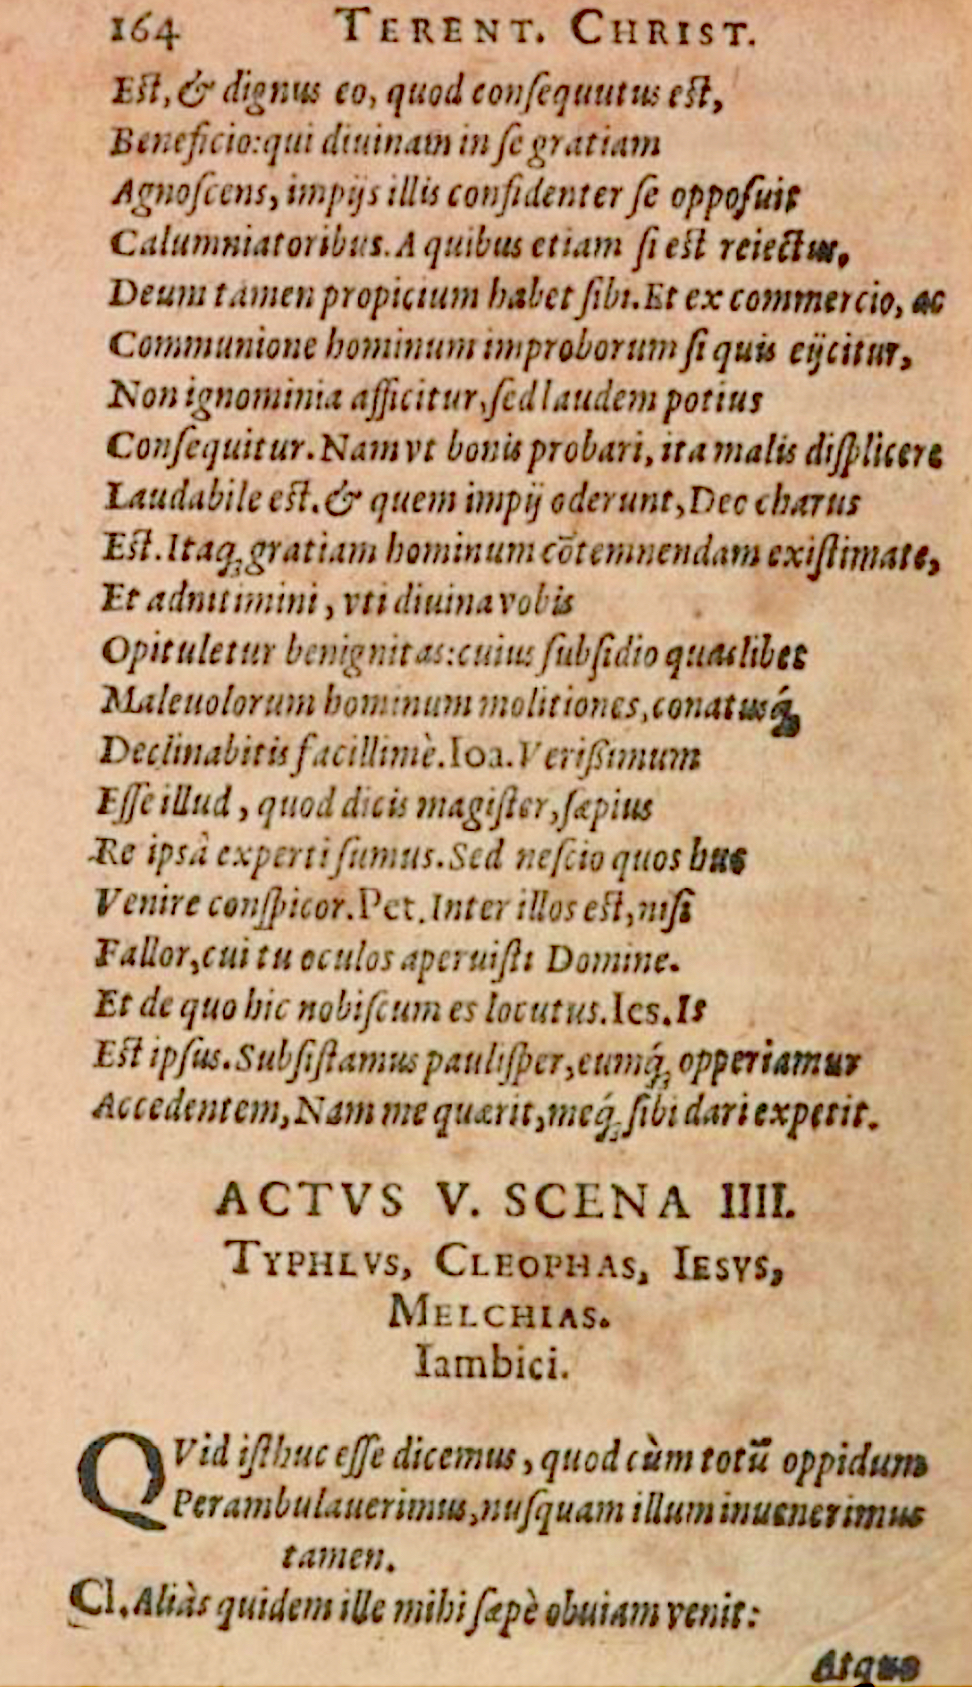 164 TERENT. CHRIST.
Eſt, & dignus eo, quod conſequutus eſt,
Beneficio:qui diuinam in ſe gratiam
Agnoſcens, impijs illis confidenter ſe oppoſuit
Calumniatoribus. A quibus etiam ſi eſt reiectus,
Deum tamen propicium habet ſibi. Et ex commercio, ac
Communione hominum improborum ſi quis eijcitur,
Non ignominia afficitur, ſed laudem potius
Conſequitur. Nam vt bonis probari, ita malis diſplicere
Laudabile eſt. & quem impij oderunt, Deo charus
Eſt. Itaq; gratiam hominum cōtemnendam exiſtimate,
Et adnitimini, vti diuina vobis
Opituletur benignitas: cuius ſubſidio quaslibet
Maleuolorum hominum molitiones, conatusq́;
Declinabitis facillimè. Ioa. Verißimum
Eſſe illud, quod dicis magiſter, ſæpius
Re ipsâ experti ſumus. Sed neſcio quos huc
Venire conſpicor. Pet. Inter illos eſt, niſi
Fallor, cui tu oculos aperuiſti Domine.
Et de quo hic nobiſcum es locutus. Ies. Is
Eſt ipſus. Subſiſtamus pauliſper, eumq́; opperiamur
Accedentem, Nam me quærit, meq́; ſibi dari expetit.
ACTVS V. SCENA IIII.
TYPHLVS, CLEOPHAS, IESVS,
MELCHIAS.
Iambici.
QVid iſthuc eſſe dicemus, quod cùm totū oppidum
Perambulauerimus, nuſquam illum inuenerimus
tamen.
Cl. Aliàs quidem ille mihi ſæpè obuiam venit:
Atque